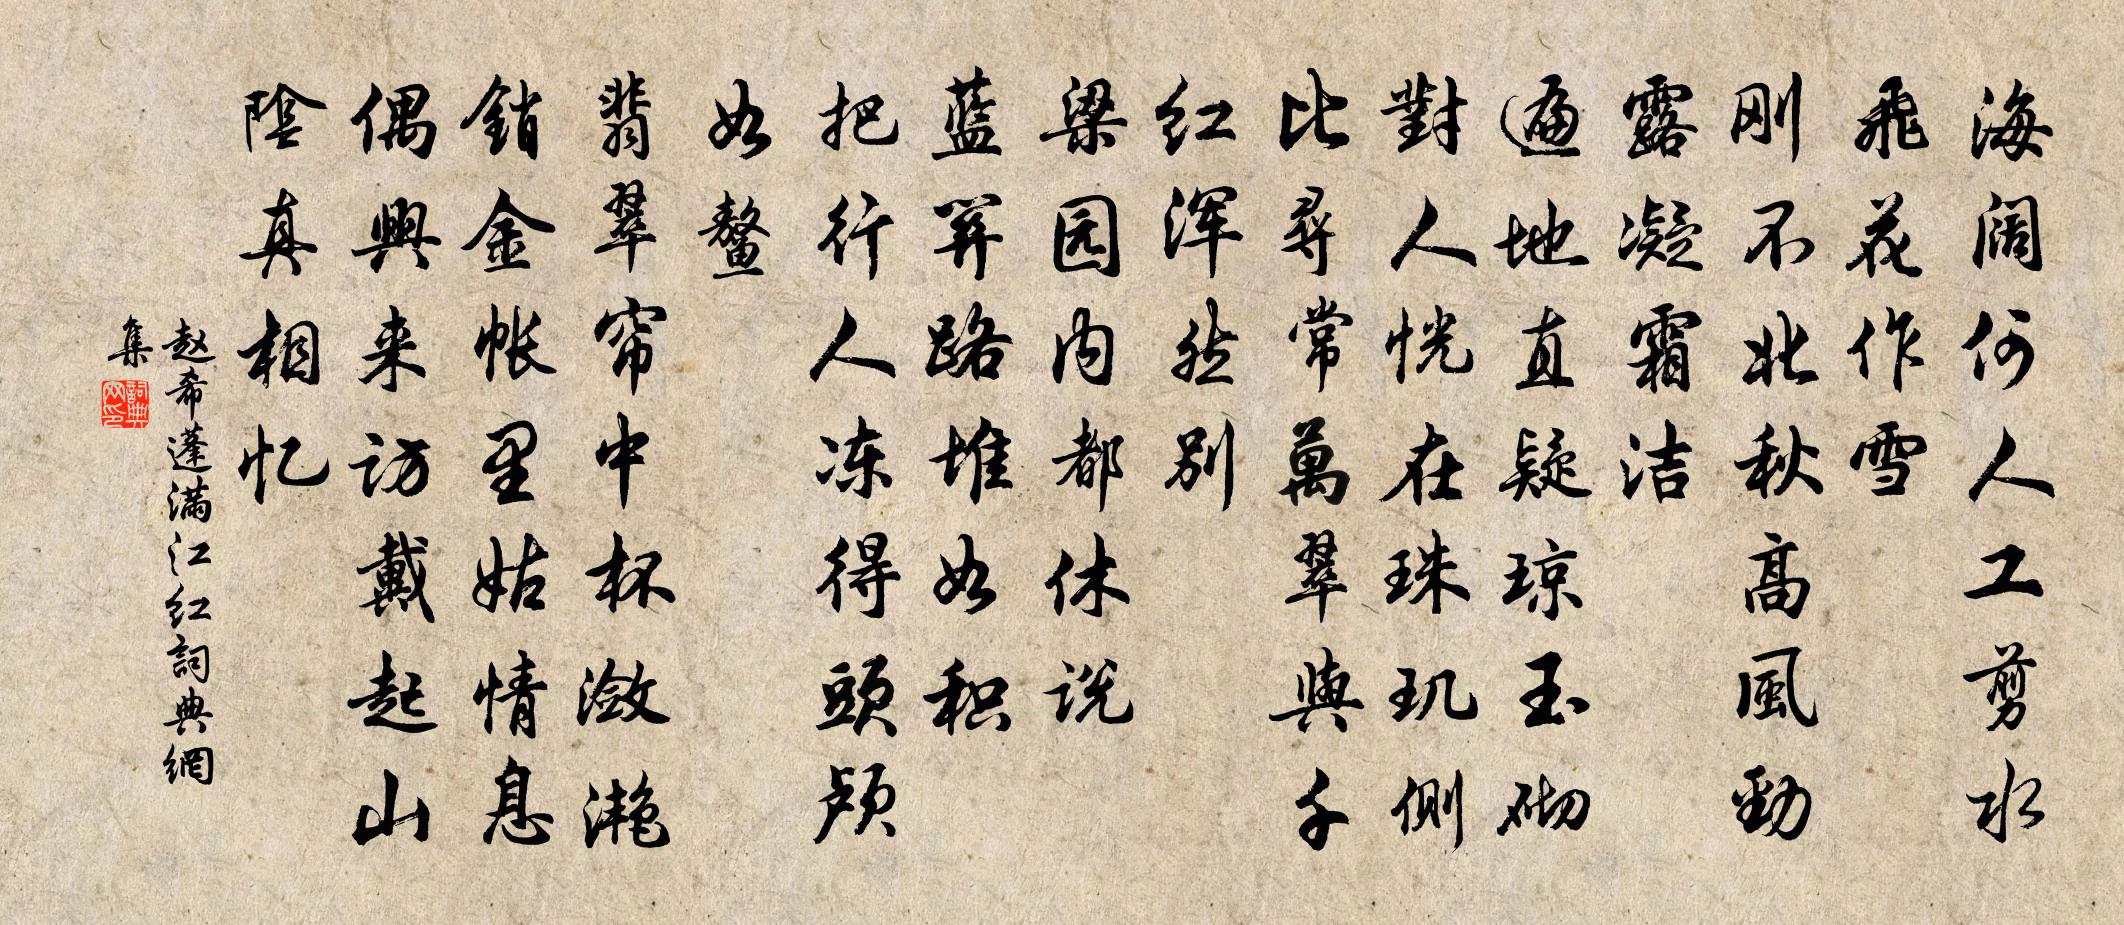 海阔何人工剪水
飛花作雪
刚不比秋高風勁
露凝霜洁
遍地直疑琼玉砌
對人恍在珠玑側
比尋常萬翠與千
红浑然别
梁园内都休说
蓝関路堆如积
把行人冻得頭颅
如鳌
翡翠帘中杯潋滟
銷金帐里姑情息
偶興来访戴起山
陰真相忆
赵希蓬满江红詞典網
集